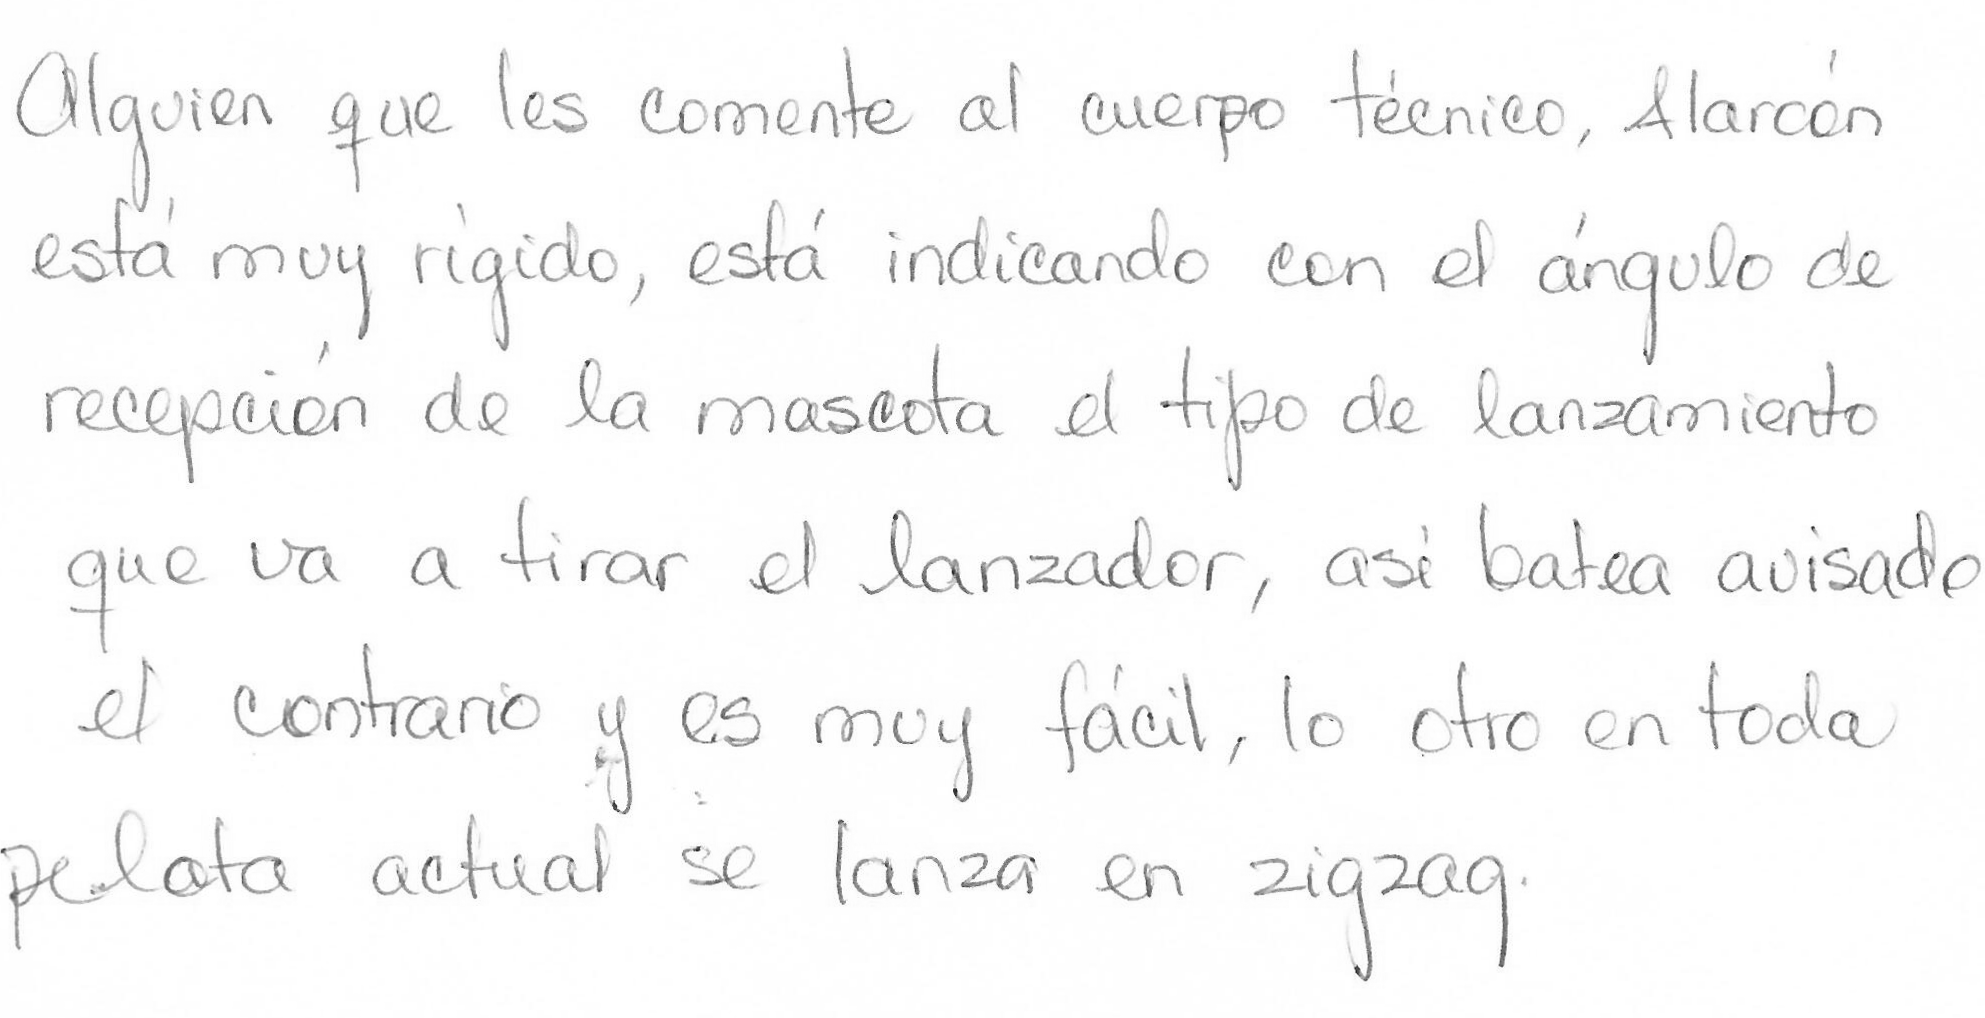 Alguien que les comente al cuerpo técnico, Alarcón
está muy rígido, está indicando con el ángulo de
recepción de la mascota el tipo de lanzamiento
que va a tirar el lanzador, así batea avisado
el contrario y es muy fácil, lo otro en toda
pelota actual se lanza en zigzag.